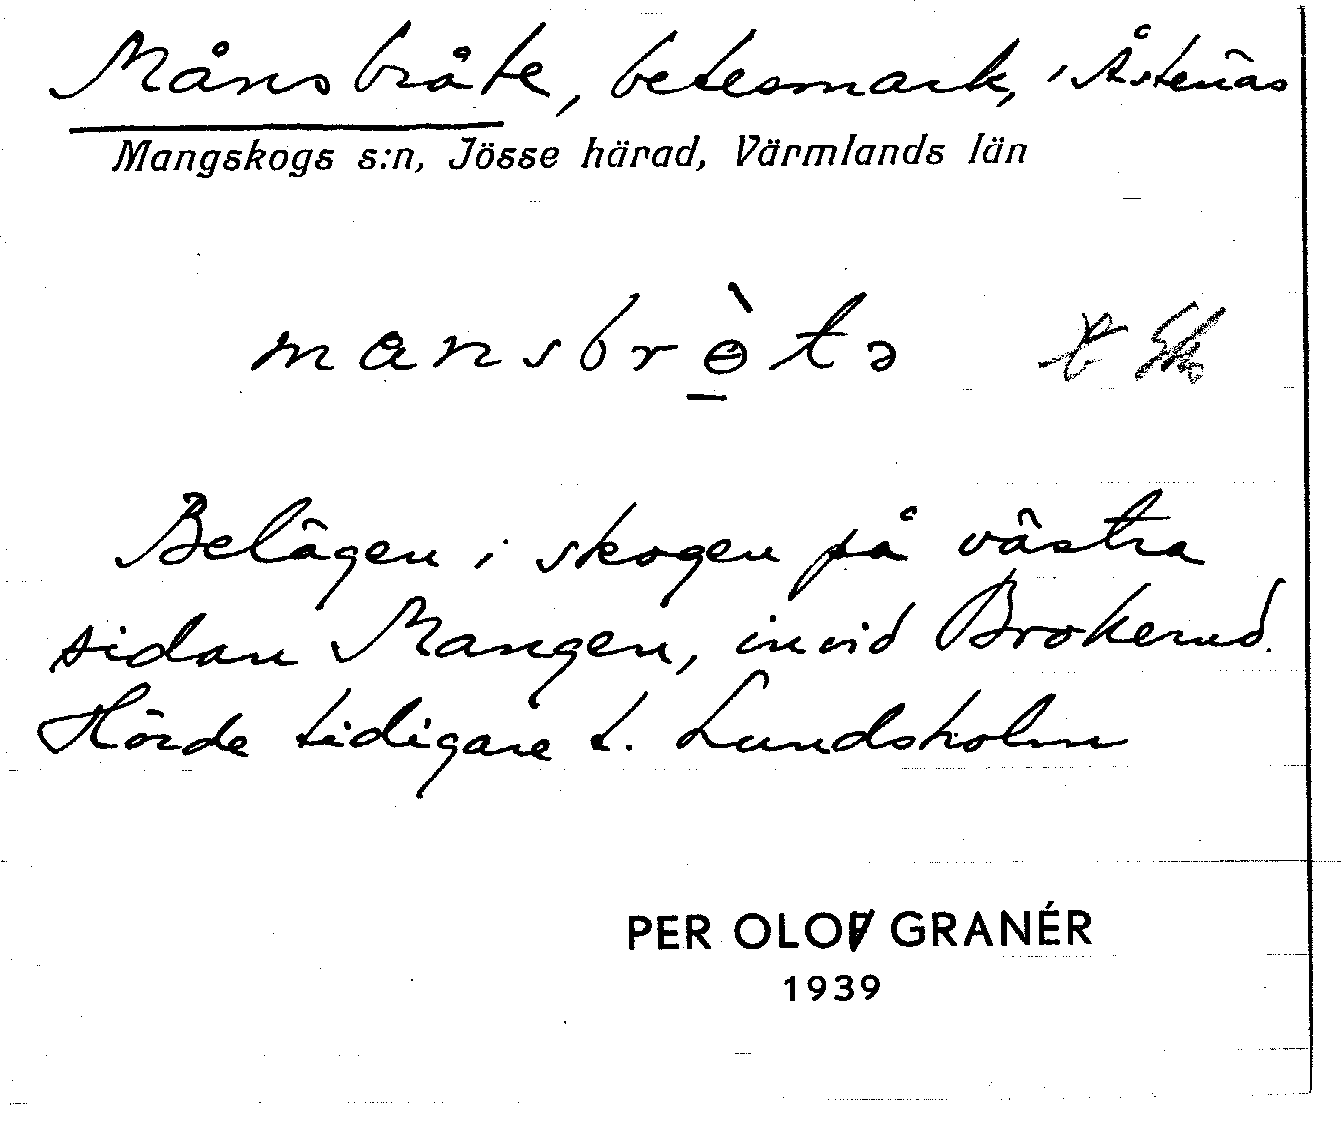 Månsbråte, betesmark, i Åstenäs
Mangskogs s:n, Jösse härad, Värmlands län
mansbrɵ̠̀tə
Belägen i skogen på västra
sidan Mangen, invid Brokerud.
Hörde tidigare t. Lundsholm
PER OLOF GRANÉR
1939